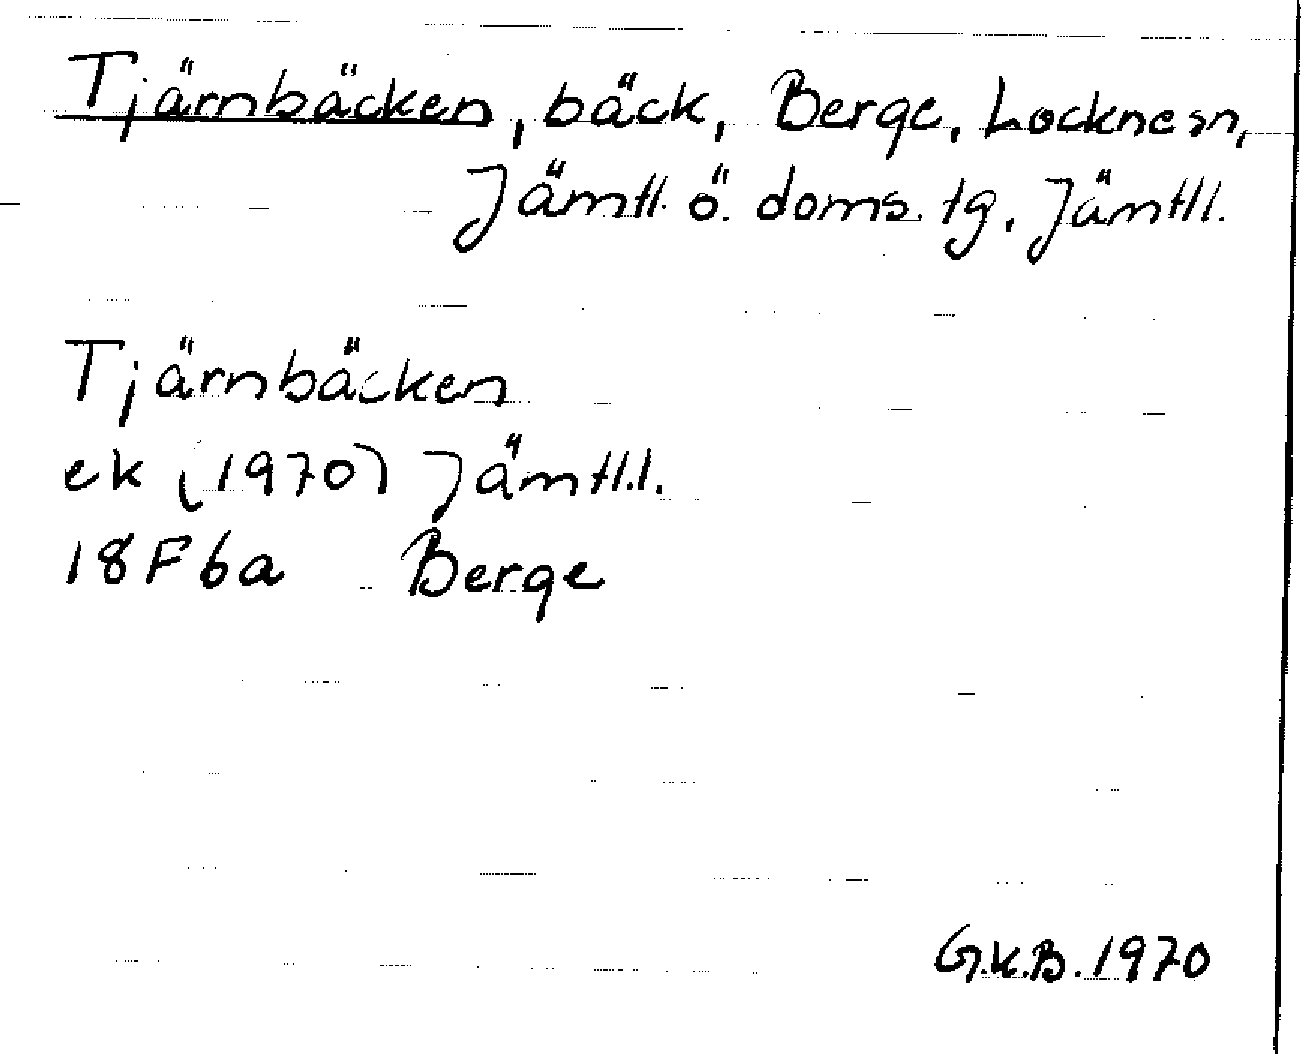 Tjärnbäcken, bäck, Berge, Locknesn,
Jämtl. ö. doms. tg. Jämtll.
Tjärnbäcken
ek (1970) Jämtl.l.
18F6a Berge
G.K.B. 1970